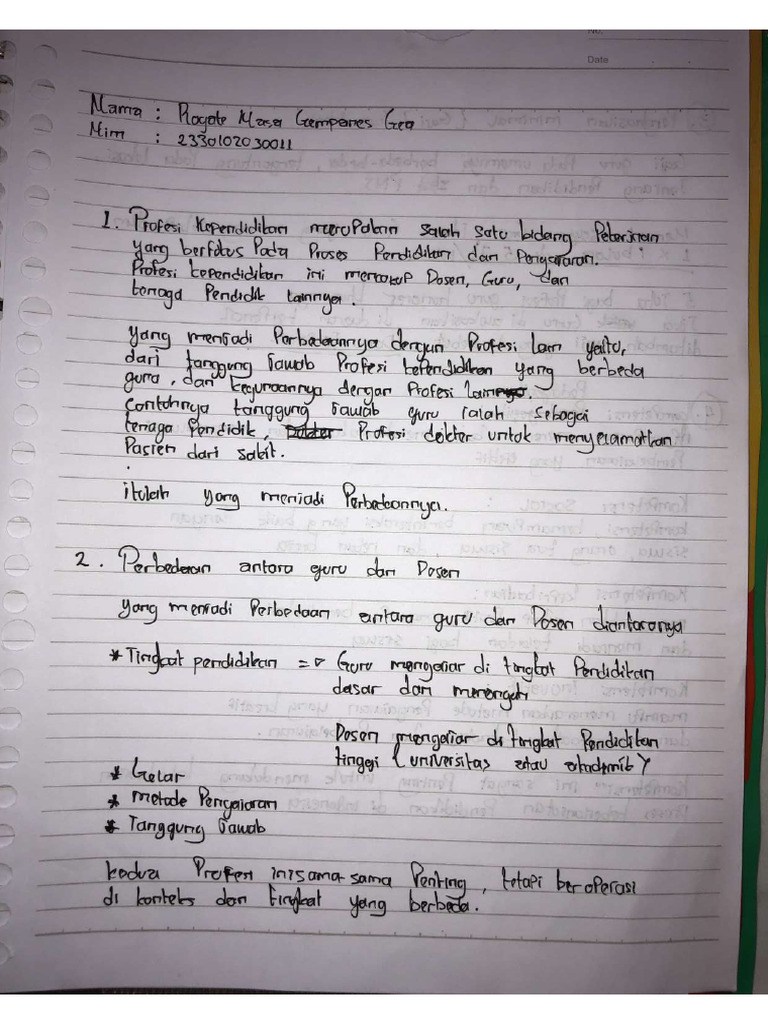 No.
Date
Nama : Rogate Masa Gempanes Gea
Nim : 2330102030011
1. Profesi Kependidikan merupakan salah satu bidang Pekerjaan
yang berfokus Pada Proses Pendidikan dan Pengajaran.
Profesi kependidikan ini mencakup Dosen, Guru, dan
tenaga Pendidik lainnya.
yang menjadi Perbedaannya dengan Profesi lain yaitu,
dari tanggung Jawab Profesi kependidikan yang berbeda
guna, dan kegunaannya dengan Profesi lainnya.
Contohnya tanggung Jawab guru ialah sebagai
tenaga Pendidik, Profesi dokter untuk menyelamatkan
Pasien dari sakit.
itulah yang menjadi Perbedaannya.
2. Perbedaan antara guru dan Dosen
yang menjadi Perbedaan antara guru dan Dosen diantaranya
* Tingkat pendidikan => Guru mengajar di tingkat Pendidikan
dasar dan menengah
Dosen mengajar di tingkat Pendidikan
tinggi (universitas atau akademik)
* Gelar
* metode Pengajaran
* Tanggung Jawab
kedua Profesi ini sama-sama Penting, tetapi beroperasi
di konteks dan tingkat yang berbeda.